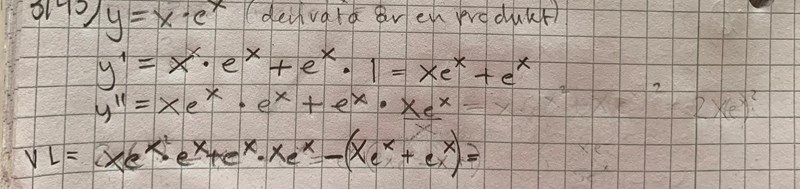 3145) y = x · eˣ (derivata är en produkt)
y' = x · eˣ + eˣ · 1 = xeˣ + eˣ
y'' = xeˣ · eˣ + eˣ · xeˣ =
VL = xeˣ · eˣ + eˣ · xeˣ - (xeˣ + eˣ) =